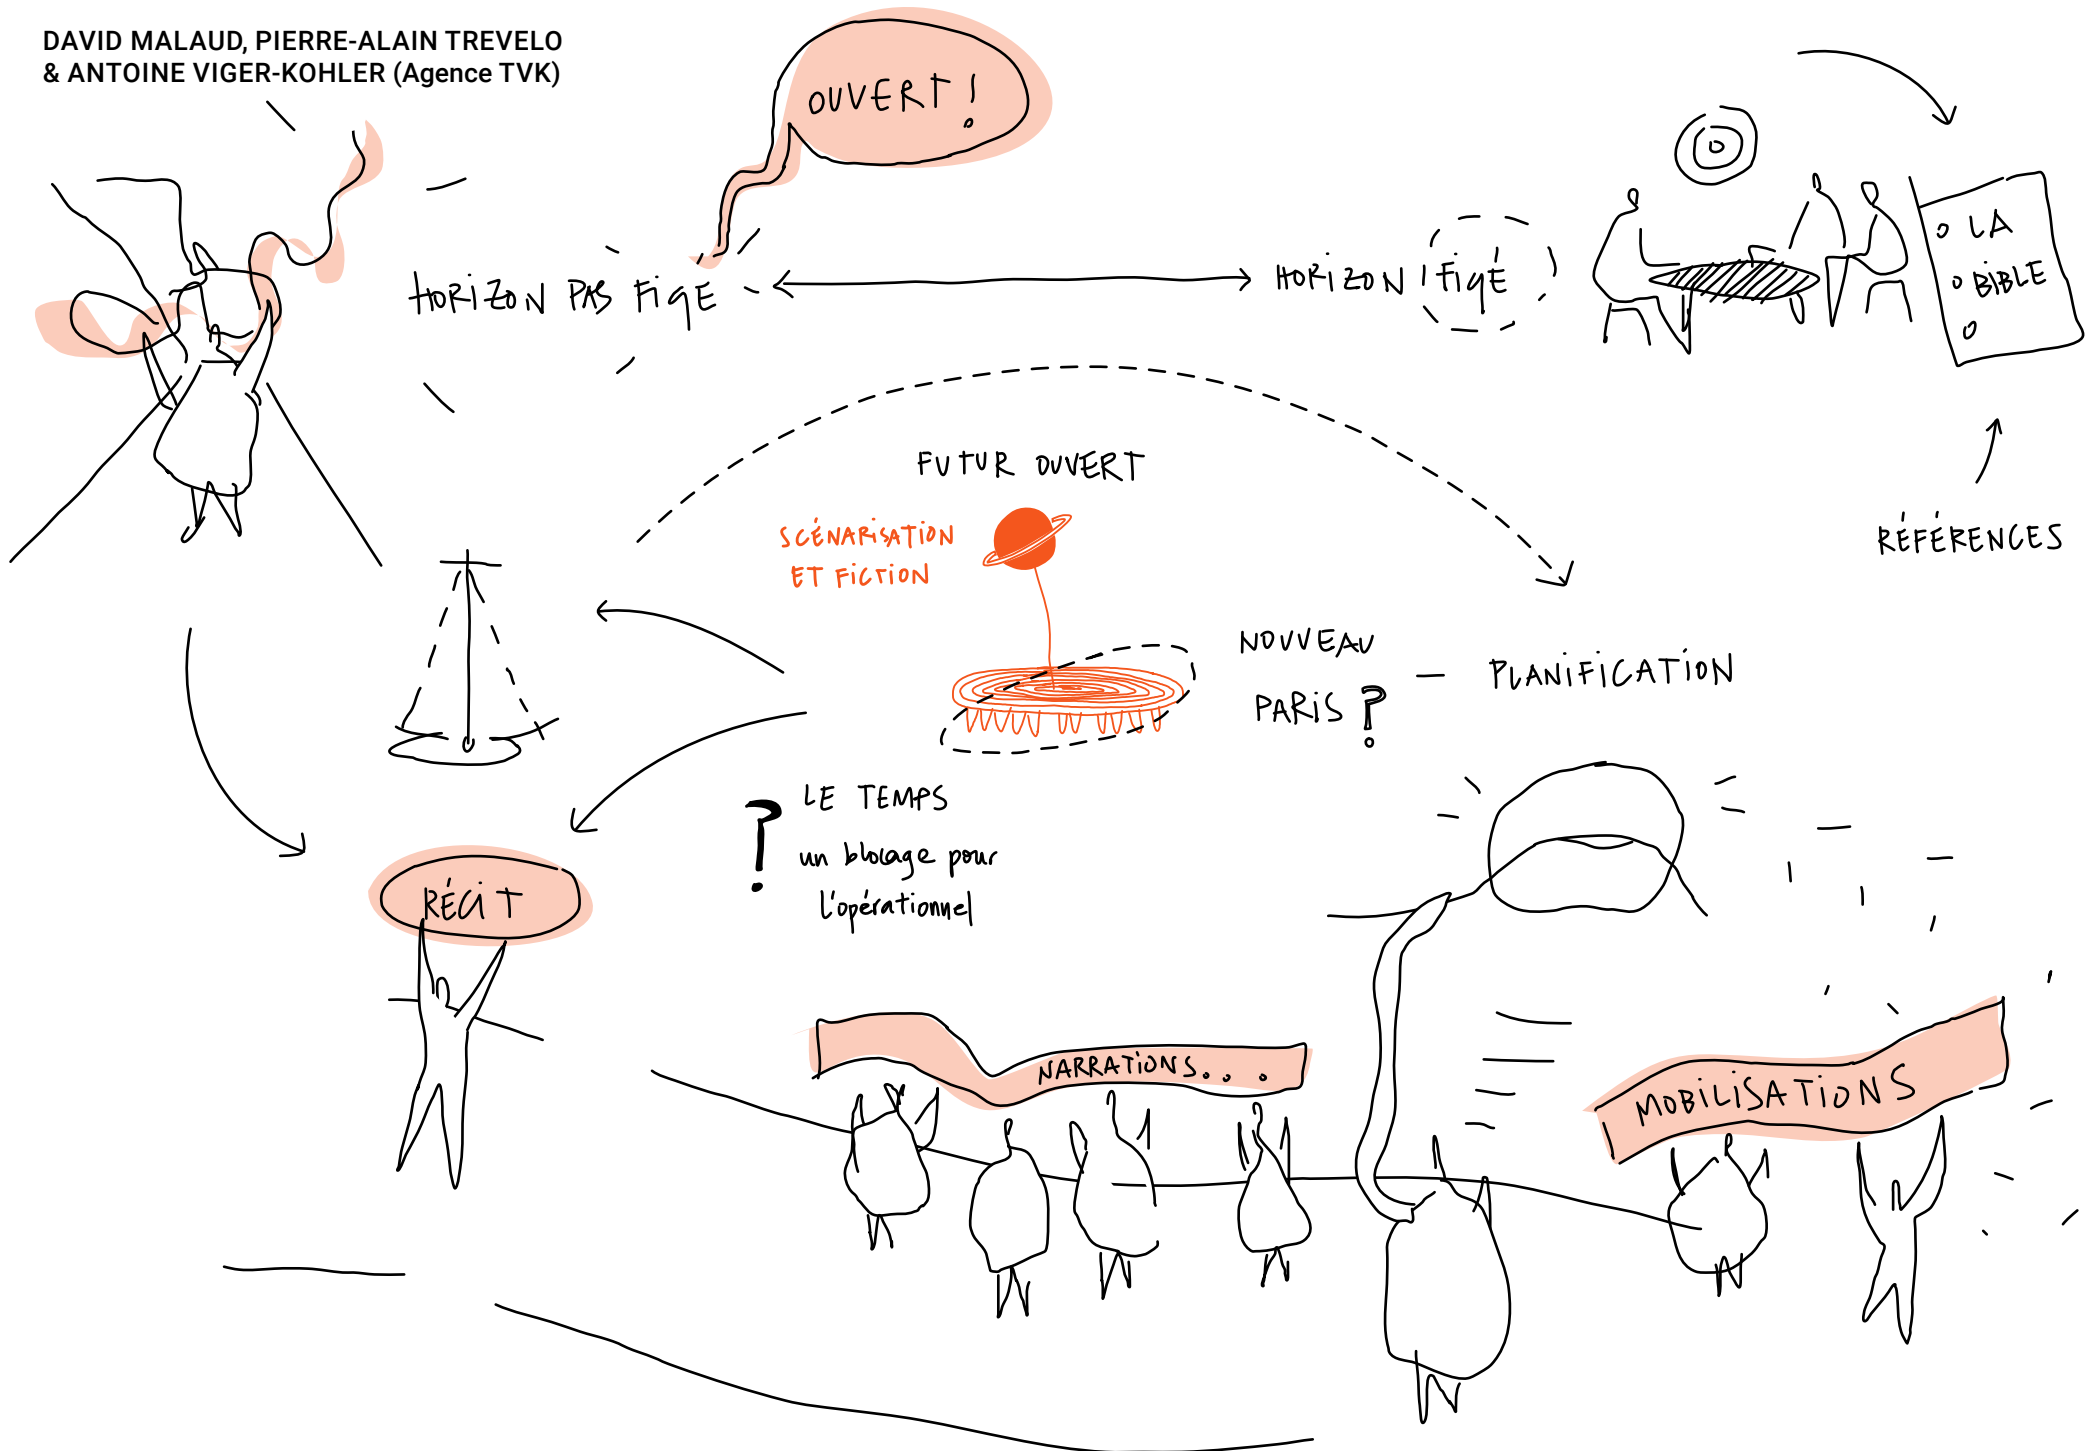 DAVID MALAUD, PIERRE-ALAIN TREVELO
& ANTOINE VIGER-KOHLER (Agence TVK)
OUVERT !
HORIZON PAS FIGÉ
HORIZON FIGÉ
LA
BIBLE
RÉFÉRENCES
FUTUR OUVERT
SCÉNARISATION
ET FICTION
NOUVEAU
PARIS ?
— PLANIFICATION
? LE TEMPS
un blocage pour
l'opérationnel
RÉCIT
NARRATIONS...
MOBILISATIONS